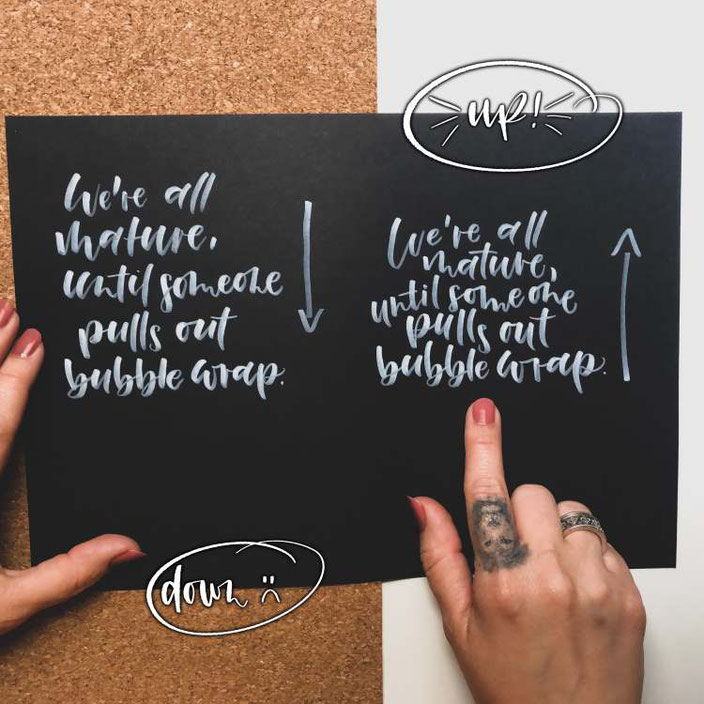 up!
We're all
mature,
until someone
pulls out
bubble wrap.
We're all
mature,
until someone
pulls out
bubble wrap.
down :(